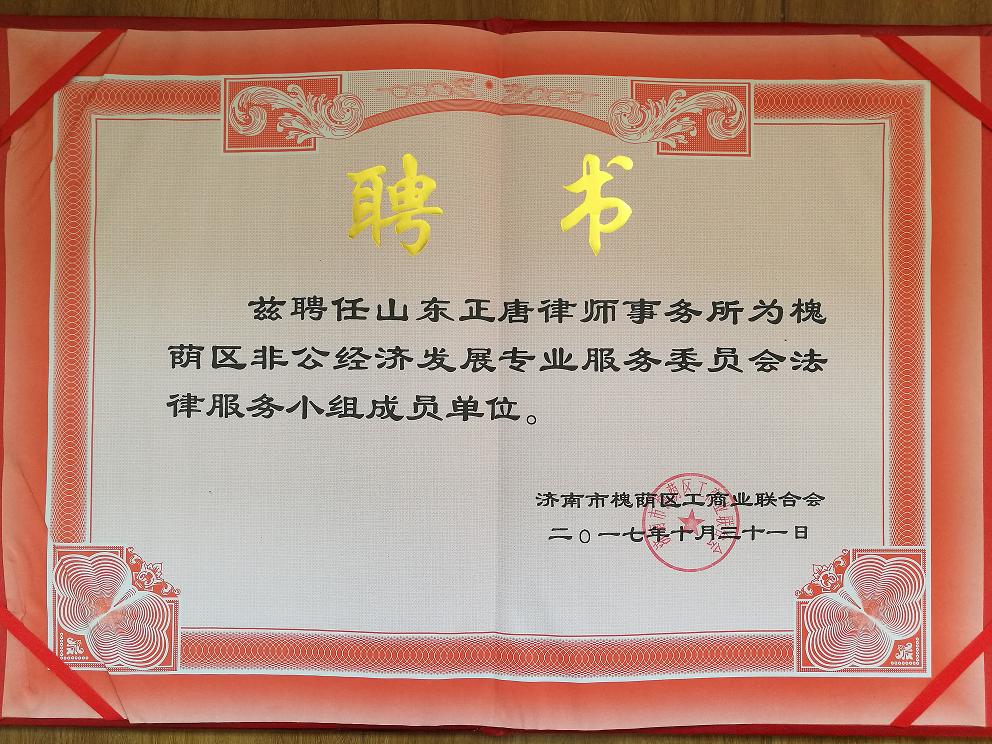 聘书
兹聘任山东正唐律师事务所为槐
荫区非公经济发展专业服务委员会法
律服务小组成员单位。
济南市槐荫区工商业联合会
二〇一七年十月三十一日